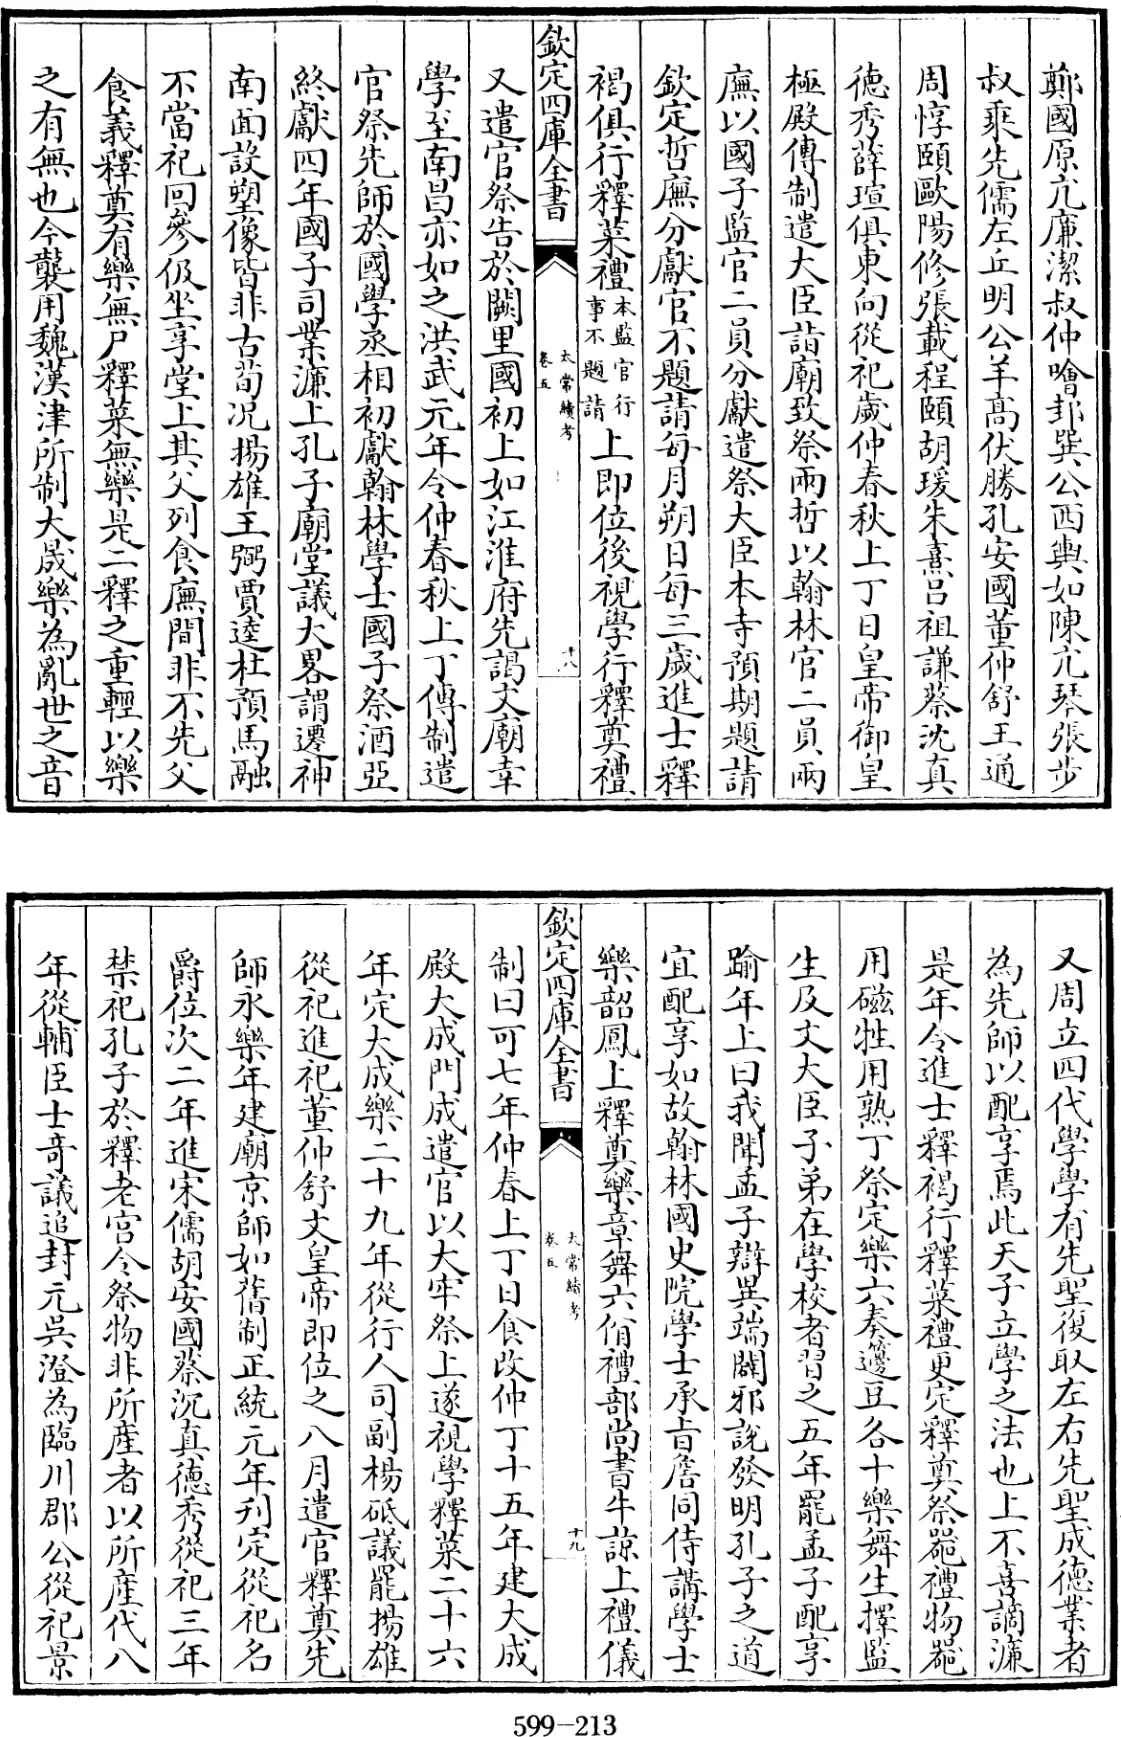 鄭國原亢廉潔叔仲噲邽巽公西輿如陳亢琴張步
叔乘先儒左丘明公羊髙伏勝孔安國董仲舒王通
周惇頤歐陽修張載程頤胡瑗朱熹吕祖謙蔡沈真
德秀薛瑄俱東向從祀歲仲春秋上丁日皇帝御皇
極殿傳制遣大臣詣廟致祭兩哲以翰林官二員兩
廡以國子監官二員分獻遣祭大臣本寺預期題請
欽定哲廡分獻官不題請每月朔日每三歲進士釋
褐俱行釋菜禮本監官行事不題請上即位後視學行釋奠禮
欽定四庫全書
太常續考
卷五
十八
又遣官祭告於闕里國初上如江淮府先謁文廟幸
學至南昌亦如之洪武元年令仲春秋上丁傳制遣
官祭先師於國學丞相初獻翰林學士國子祭酒亞
終獻四年國子司業濂上孔子廟堂議大畧謂遷神
南面設塑像皆非古荀况揚雄王弼賈逵杜預馬融
不當祀回參伋坐享堂上其父列食廡間非不先父
食義釋奠有樂無尸釋菜無樂是二釋之重輕以樂
之有無也今襲用魏漢津所制大晟樂為亂世之音
又周立四代學學有先聖復取左右先聖成德業者
為先師以配享焉此天子立學之法也上不喜謫濂
是年令進士釋褐行釋菜禮更定釋奠祭器禮物器
用磁牲用熟丁祭定樂六奏籩豆各十樂舞生擇監
生及文大臣子弟在學校者習之五年罷孟子配享
踰年上曰我聞孟子辯異端闢邪說發明孔子之道
宜配享如故翰林國史院學士承㫖詹同侍講學士
樂韶鳳上釋奠樂章舞六佾禮部尚書牛諒上禮儀
欽定四庫全書
太常續考
卷五
十九
制曰可七年仲春上丁日食改仲丁十五年建大成
殿大成門成遣官以大牢祭上遂視學釋菜二十六
年定大成樂二十九年從行人司副楊砥議罷揚雄
從祀進祀董仲舒文皇帝即位之八月遣官釋奠先
師永樂年建廟京師如舊制正統元年刋定從祀名
爵位次二年進宋儒胡安國蔡沉真德秀從祀三年
禁祀孔子於釋老宫令祭物非所産者以所産代八
年從輔臣士竒議追封元吳澄為臨川郡公從祀景
599-213